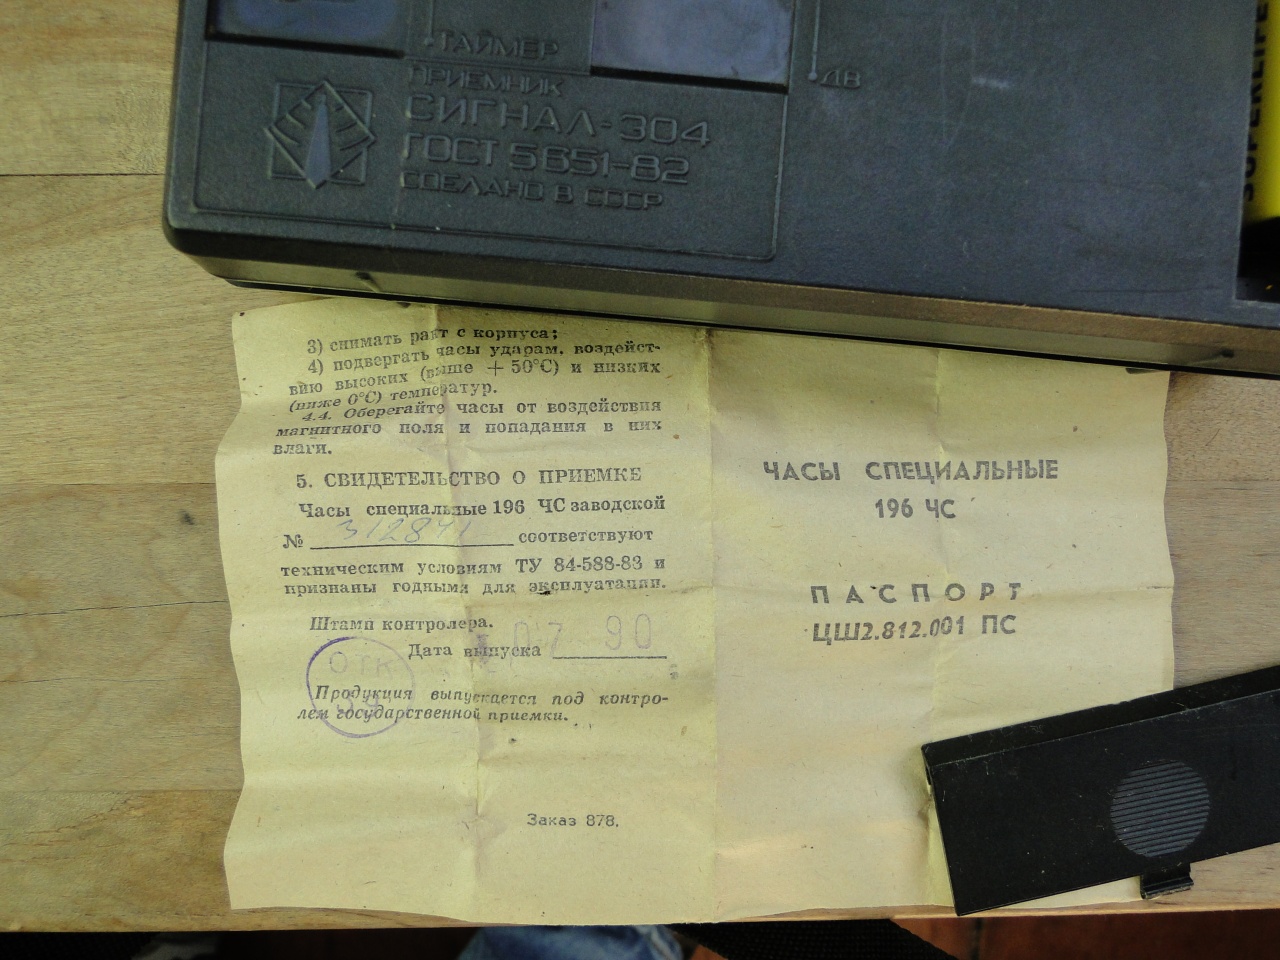 ТАЙМЕР
ДВ
ПРИЕМНИК
СИГНАЛ-304
ГОСТ 5651-82
СДЕЛАНО В СССР
SUPERLIFE
3) снимать рант с корпуса;
4) подвергать часы ударам, воздейст-
вию высоких (выше + 50°С) и низких
(ниже 0°С) температур.
4.4. Оберегайте часы от воздействия
магнитного поля и попадания в них
влаги.
5. СВИДЕТЕЛЬСТВО О ПРИЕМКЕ
Часы специальные 196 ЧС заводской
№ 312841 соответствуют
техническим условиям ТУ 84-588-83 и
признаны годными для эксплуатации.
Штамп контролера.
Дата выпуска 07 90
ОТК
Продукция выпускается под контро-
лем государственной приемки.
Заказ 878.
ЧАСЫ СПЕЦИАЛЬНЫЕ
196 ЧС
ПАСПОРТ
ЦШ2.812.001 ПС